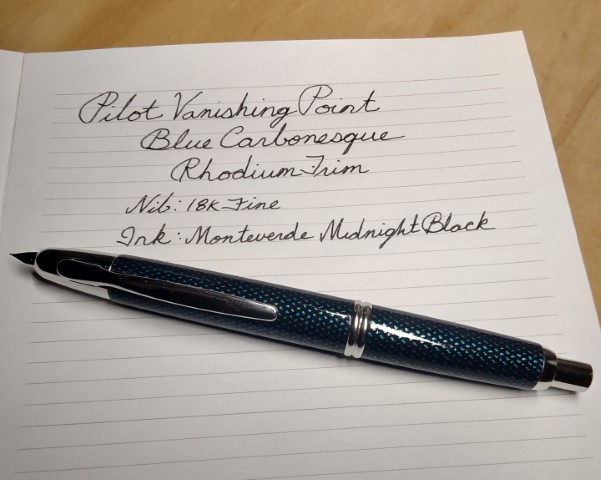 Pilot Vanishing Point
Blue Carbonesque
Rhodium Trim
Nib: 18K Fine
Ink: Monteverde Midnight Black